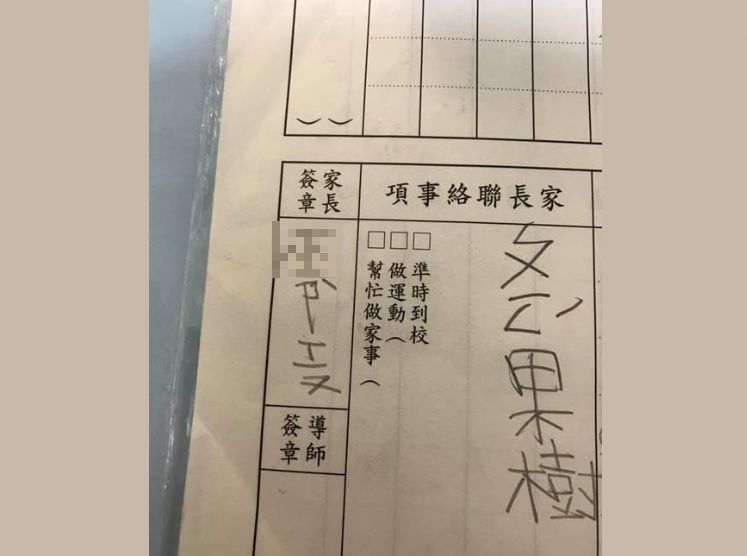 家長聯絡事項
果樹
□準時到校
□做運動（
□幫忙做家事（
家長
簽章
導師
簽章